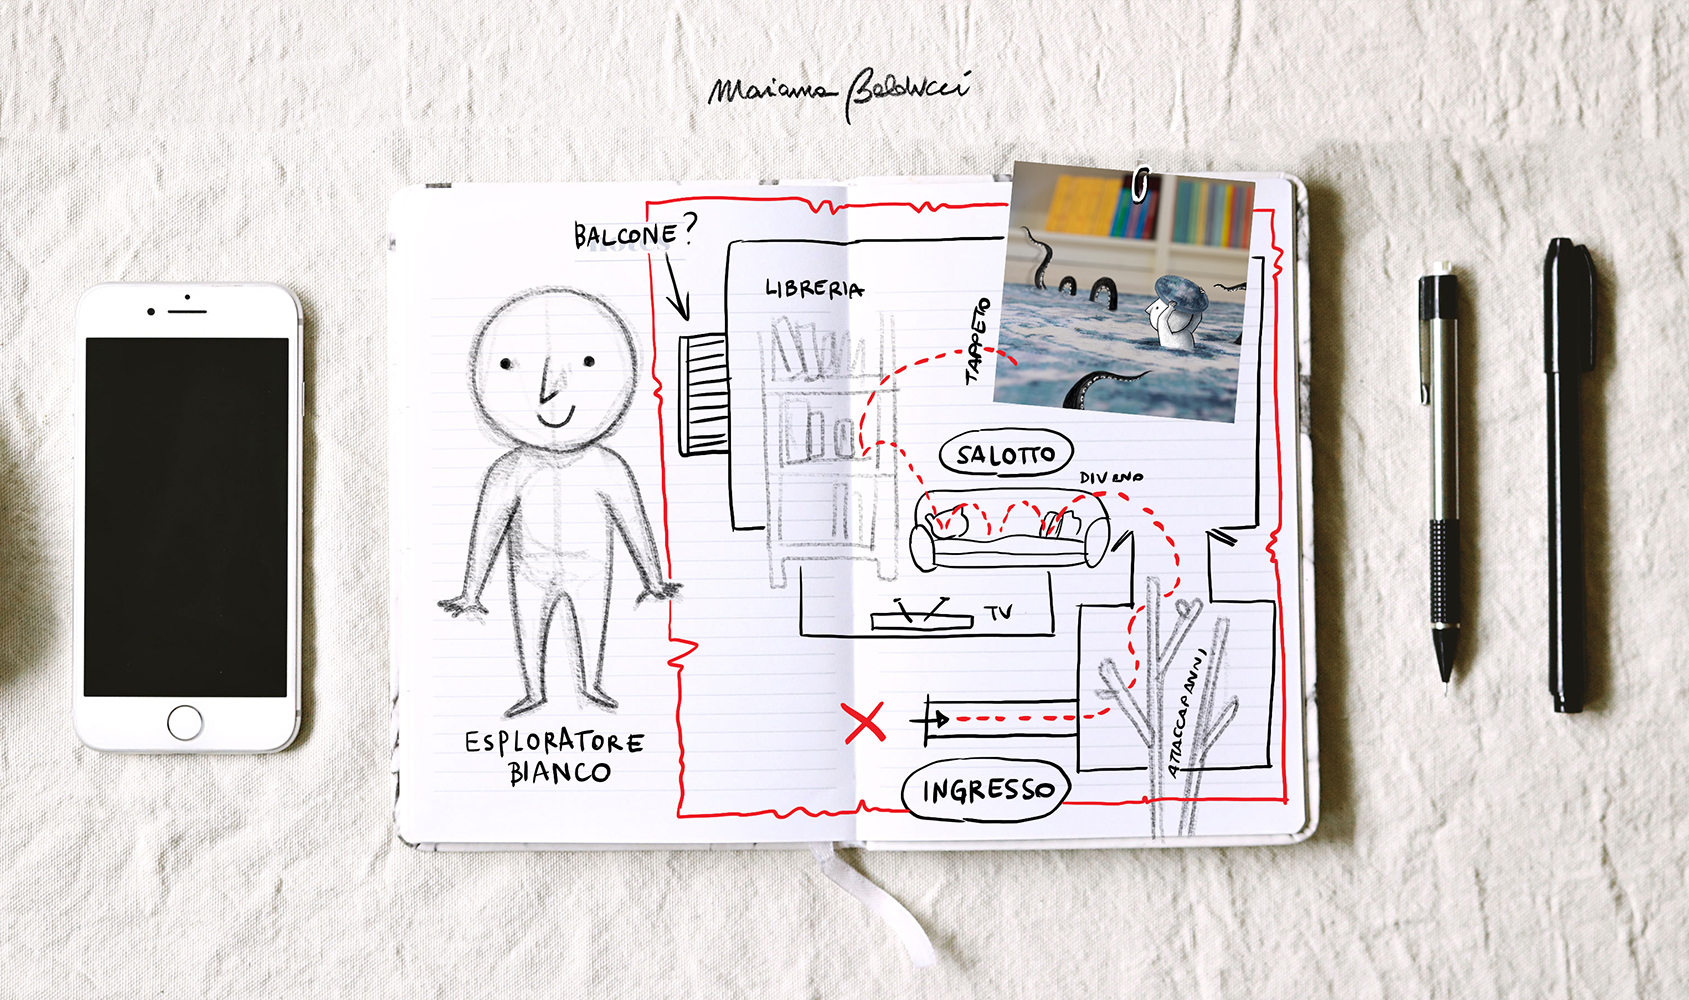 Marianna Balducci
BALCONE?
LIBRERIA
TAPPETO
SALOTTO
DIVANO
TV
ATTACCAPANNI
ESPLORATORE
BIANCO
INGRESSO